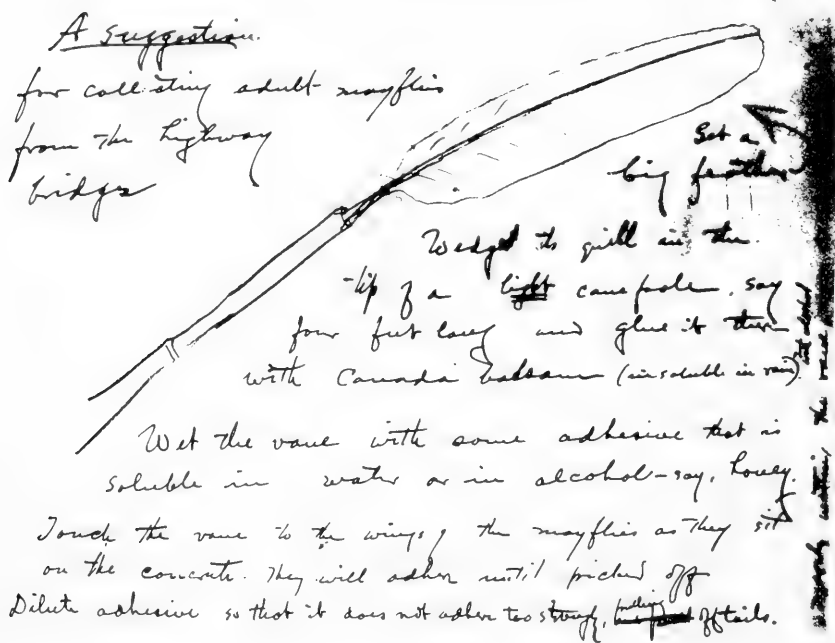 A suggestion.
for collecting adult mayflies
from the highway
bridge
Get a
big feather
Wedge its quill in the
tip of a light cane pole, say
four feet long and glue it there
with Canada balsam (insoluble in rain).
Wet the vane with some adhesive that is
soluble in water or in alcohol - say, honey.
Touch the vane to the wings of the mayflies as they sit
on the concrete. They will adhere until picked off
Dilute adhesive so that it does not adhere too strongly, pulling off tails.
the vane
with alcohol